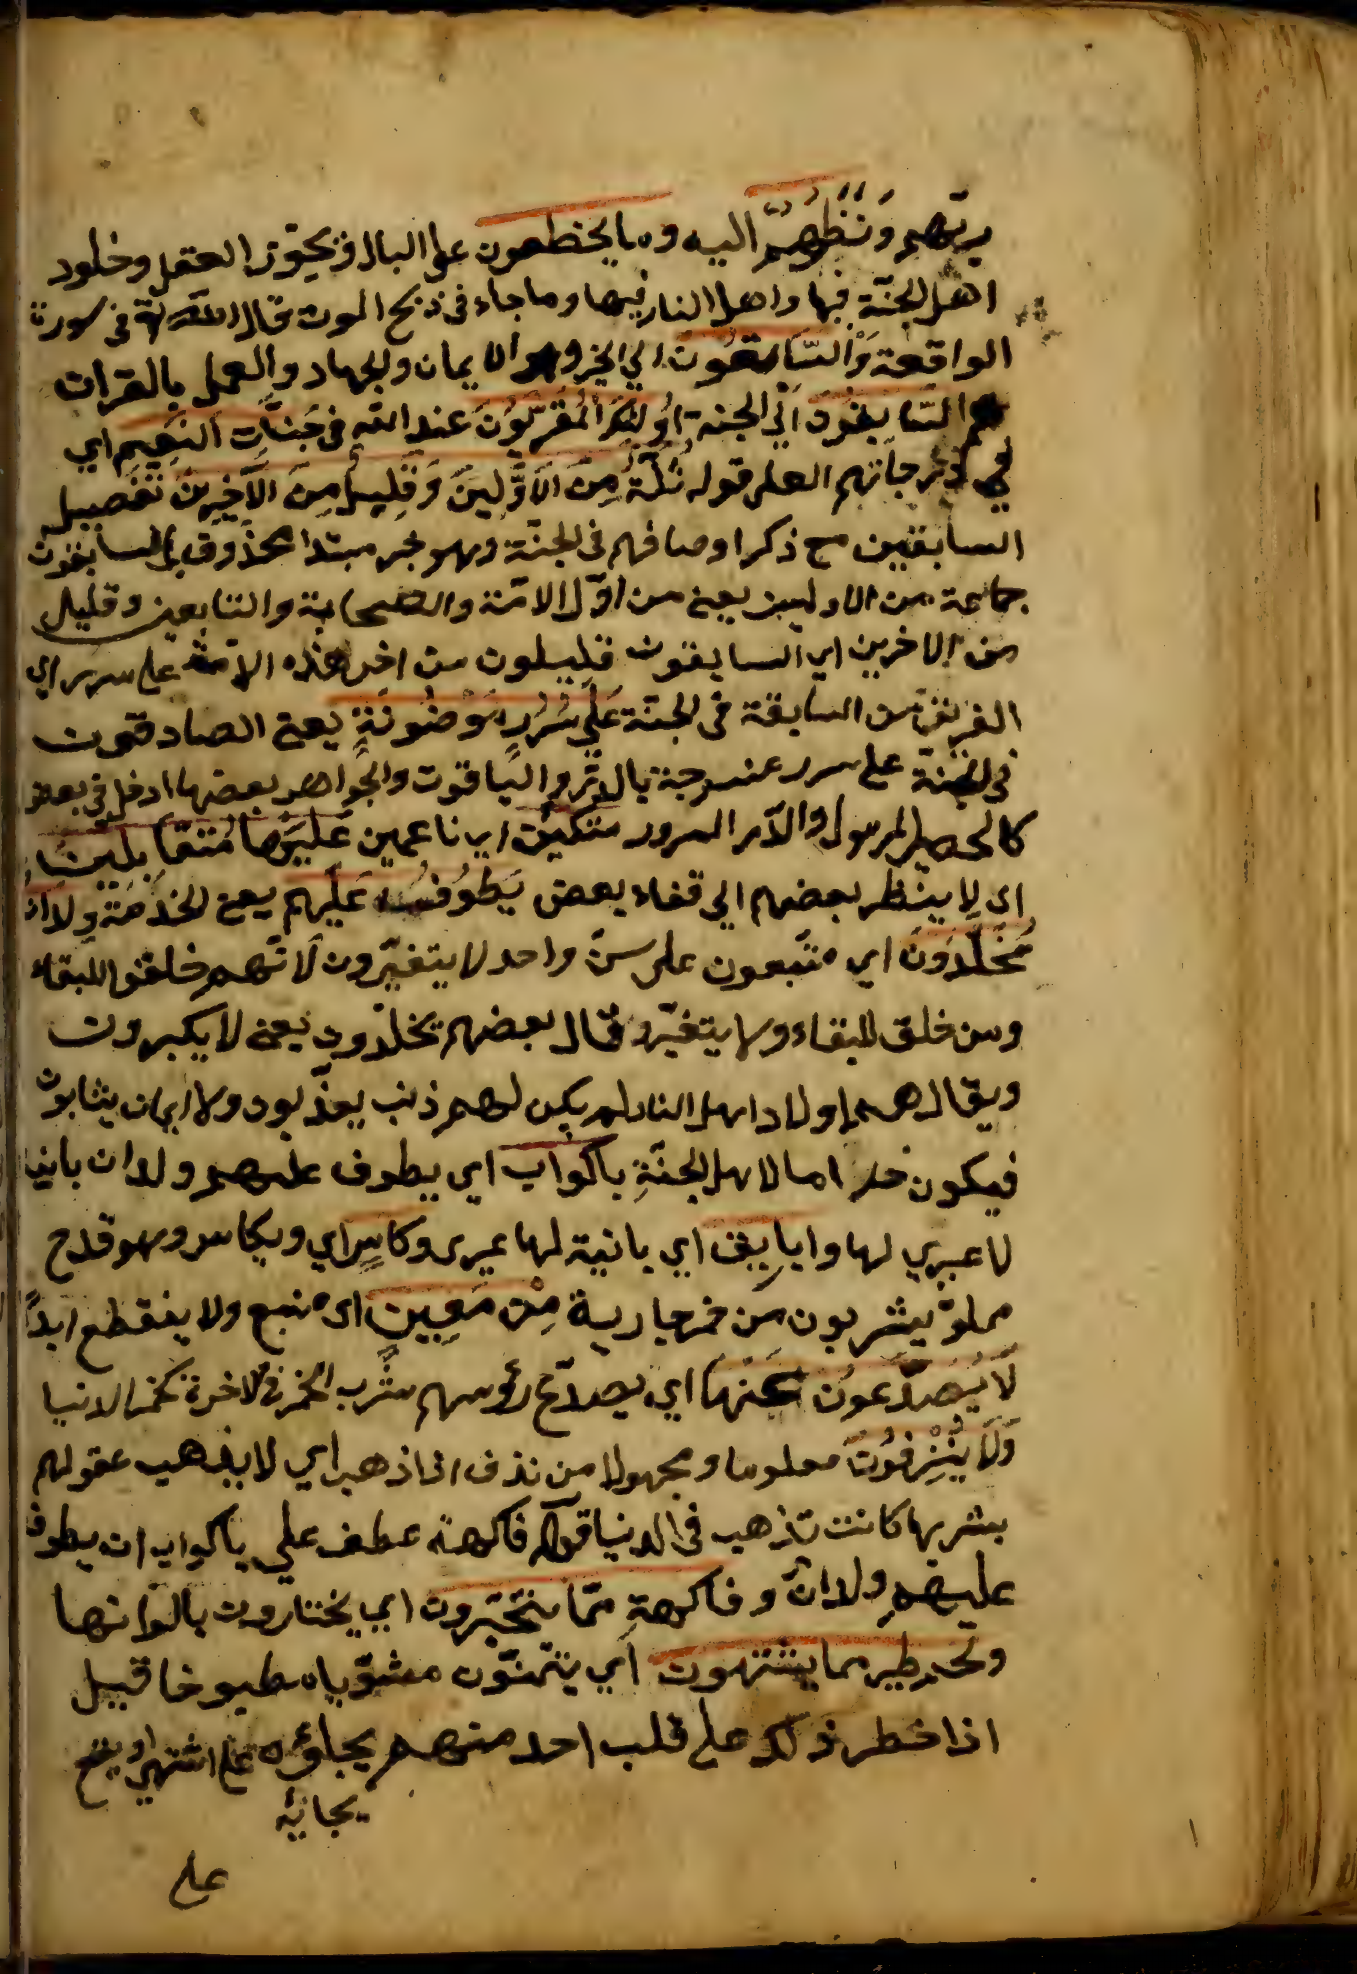 ربّهم ونظرهم اليه وما يخطرون على البال وتحيّز العقل وخلود
اهل الجنّة فيها واهل النار فيها وما جاء في ذبح الموت قال الله تع في سورة
الواقعة وَالسّابقون الى الخير وهو الايمان والجهاد والعمل بالقرات
هم السَّابِقُونَ الى الجنة اُولئِكَ الْمُقَرَّبُونَ عند الله في جَنَّاتِ النَّعِيمِ اي
في درجاتهم العلى قوله ثُلَّةٌ مِنَ الْاَوَّلِينَ وَقَلِيلٌ مِنَ الْآخِرِينَ تفصيل
السابقين مع ذكر اوصافهم في الجنّة وهو خبر مبتدا محذوف اي السابقون
جماعة من الاولين يعنى من اوّل الامّة والصحابة والتابعين وقليل
من الاخرين اي السابقون قليلون من اخر هذه الامّة على سرر اي
الفريقين السابقة في الجنّة عَلَى سُرُرٍ مَوْضُونَةٍ يعنى الصادقون
في الجنّة على سرر منسوجة بالدّر والياقوت والجواهر بعضها ادخل في بعض
كالحصير المرمول والدّر المرور متكئين اي ناعمين عَلَيْهَا مُتَقَابِلِينَ
اى لا ينظر بعضهم الى قفاء بعض يَطُوفُ عَلَيْهِم يعنى الخدمة وِلْدَان
مُخَلَّدُونَ اي متبعون على سنّ واحد لا يتغيّرون لانّهم خلقوا للبقاء
ومن خلق للبقاء ولا يتغيّر وقال بعضهم يخلّدون يعنى لا يكبرون
ويقال هم اولاد اهل النار لم يكن لهم ذنب يعذّبون ولا ايمان يثابون
فيكون خداما لاهل الجنّةِ باكواب اي يطوف عليهم ولدان بانية
لا عرى لها واباريق اي بانية لها عرى وكأسٍ اي وبكاس وهو قدح
مملوّ يشربون من خمر جارية مِنْ مَعِينٍ اى منبع ولا ينقطع ابداً
لَا يُصَدَّعُونَ عَنْهَا اي يصدّع رؤسهم شرب الخمر في الاخرة كخمر الدنيا
وَلَا يُنْزِفُونَ معلوما ومجهولا من نذف اذا ذهب اي لا يذهب عقولهم
بشربها كانت تذهب في الدنيا قوله فاكهة عطف على باكواب ان يطوف
عليهم ولدان وفاكهةٍ ممّا يتخيّرون اي يختارون بالوانها
ولحم طير مما يشتهون اي يتمنّون مشويا ومطبوخا قيل
اذا خطر ذلك على قلب احد منهم يجاؤه على اشتهى
يجانه
على